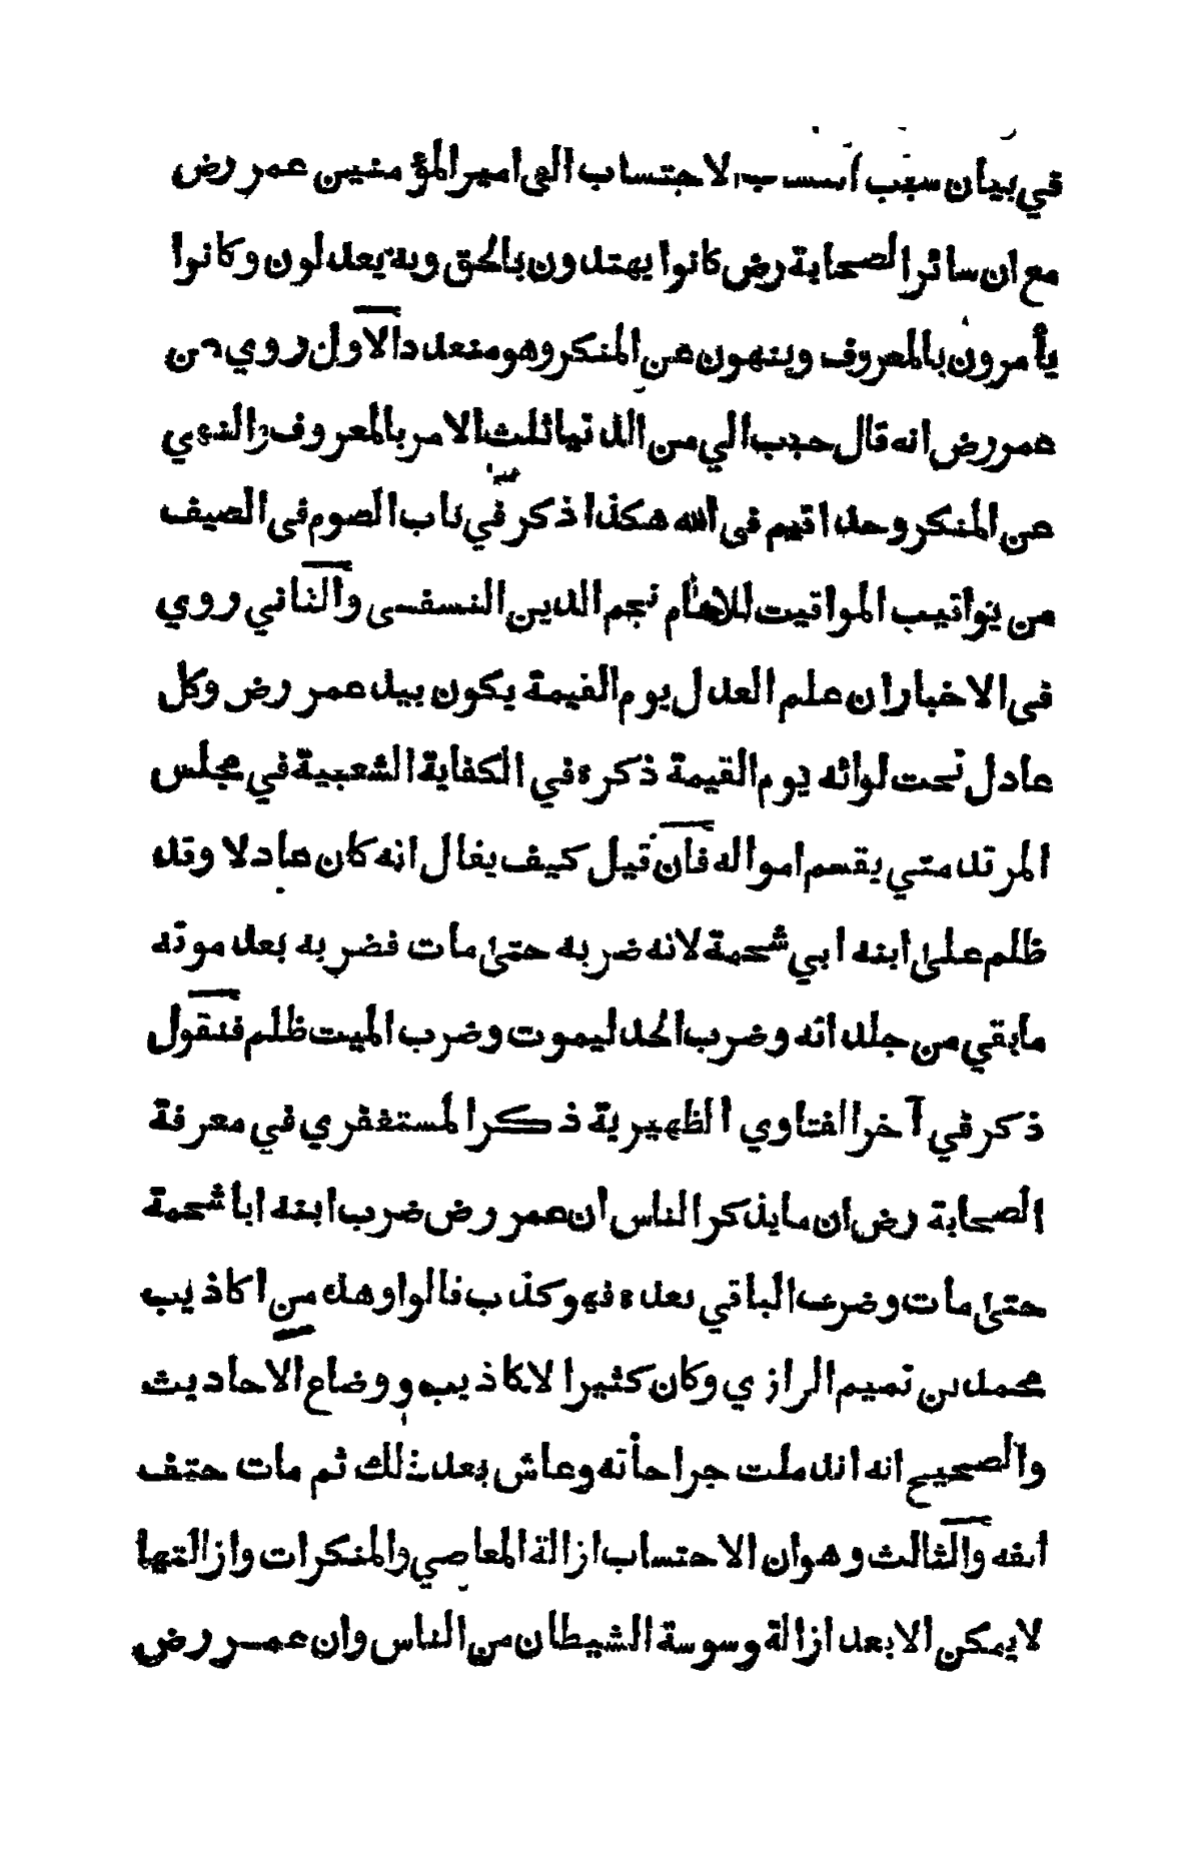 في بيان سبب انتساب الاحتساب الى امير المؤمنين عمر رض
مع ان سائر الصحابة رض كانوا يهتدون بالحق وبه يعدلون وكانوا
يأمرون بالمعروف وينهون عن المنكر وهو متعدد الاول روي عن
عمر رض انه قال حبب الي من الدنيا ثلث الامر بالمعروف والنهي
عن المنكر وحد اقيم في الله هكذا ذكر في باب الصوم في الصيف
من يواقيت المواقيت للامام نجم الدين النسفى والثاني روي
في الاخبار ان علم العدل يوم القيمة يكون بيد عمر رض وكل
عادل تحت لوائه يوم القيمة ذكره في الكفاية الشعبية في مجلس
المرتد متي يقسم امواله فان قيل كيف يقال انه كان عادلا وقد
ظلم على ابنه ابي شحمة لانه ضربه حتى مات فضربه بعد موته
مابقي من جلداته وضرب الحد ليموت وضرب الميت ظلم فنقول
ذكر في آخر الفتاوي الظهيرية ذكر المستغفري في معرفة
الصحابة رض ان ما يذكر الناس ان عمر رض ضرب ابنه ابا شحمة
حتى مات وضرب الباقي بعده فهو كذب قالوا وهذه من اكاذيب
محمد بن تميم الرازي وكان كثير الاكاذيب ووضاع الاحاديث
والصحيح انه اندملت جراحاته وعاش بعد ذلك ثم مات حتف
انفه والثالث وهو ان الاحتساب ازالة المعاصي والمنكرات وازالتها
لا يمكن الا بعد ازالة وسوسة الشيطان من الناس وان عمر رض